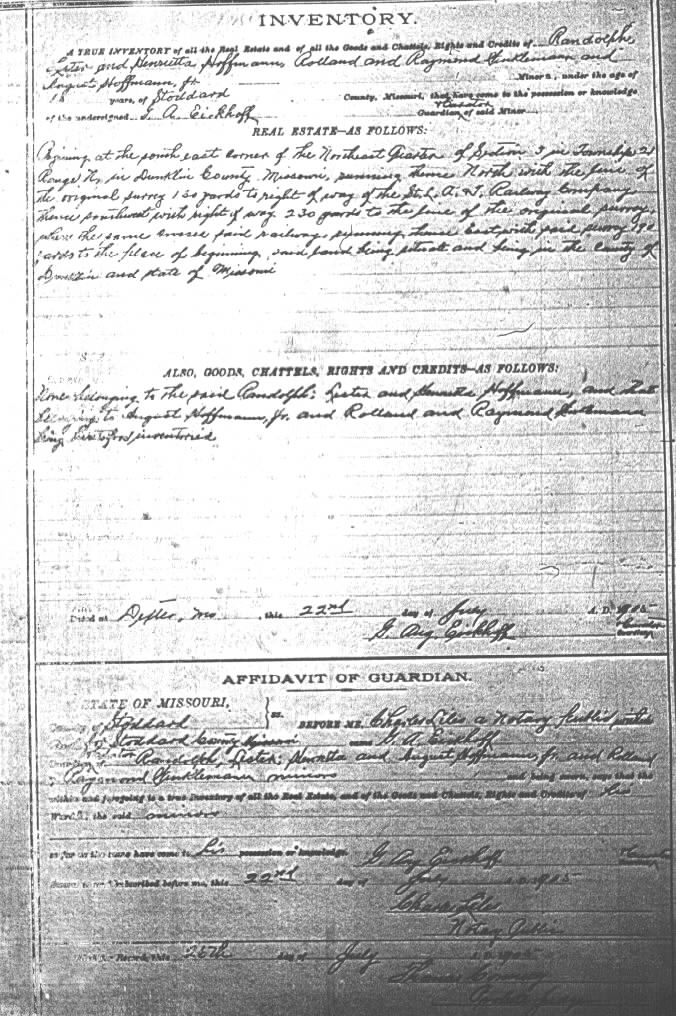 INVENTORY.
A TRUE INVENTORY of all the Real Estate and of all the Goods and Chattels, Rights and Credits of Randolph,
Lster and Henrietta Hoffmann, Rolland and Raymond Winklemann and
August Hoffmann, Jr. Minors, under the age of
18 years, of Stoddard County, Missouri, that have come to the possession or knowledge
of the undersigned G. A. Eickhoff Curator Guardian of said Minor
REAL ESTATE—AS FOLLOWS:
Begining at the south east corner of the Northeast Quarter of Section 3 in Township 21
Range in Dunklin County Missouri, running thence North with the line of
the original survey 130 yards to right of way of the St. L. Railway Company
thence southwest with right of way 230 yards to the line of the original survey,
where the same crosses said railway, running thence East with said survey 190
yards to the place of beginning, said land being situate and being in the County of
Dunklin and state of Missouri
ALSO, GOODS, CHATTELS, RIGHTS AND CREDITS—AS FOLLOWS:
None belonging to the said Randolph, Lester and Henrietta Hoffmann, and that
belonging to August Hoffmann, Jr. and Rolland and Raymond Winklemann
being heretofore inventoried
Dated at Dexter, Mo, this 22nd day of July A. D. 1905
G. Aug Eickhoff
AFFIDAVIT OF GUARDIAN.
STATE OF MISSOURI,
County of Stoddard ss. BEFORE ME, Charles Liles a Notary Public within
for Stoddard County Missouri came G. A. Eickhoff
Curator of Randolph, Lester, Henrietta and August Hoffmann, Jr. and Rolland
Raymond Winklemann minors and being sworn, says that the
within and foregoing is a true Inventory of all the Real Estate, and of the Goods and Chattels, Rights and Credits of his
Wards, the said minors
so far as the same have come to his possession or knowledge. G. Aug Eickhoff
Sworn to and subscribed before me, this 22nd day of July A. D. 1905
Charles Liles
Notary Public
Record, this 25th day of July A. D. 1905